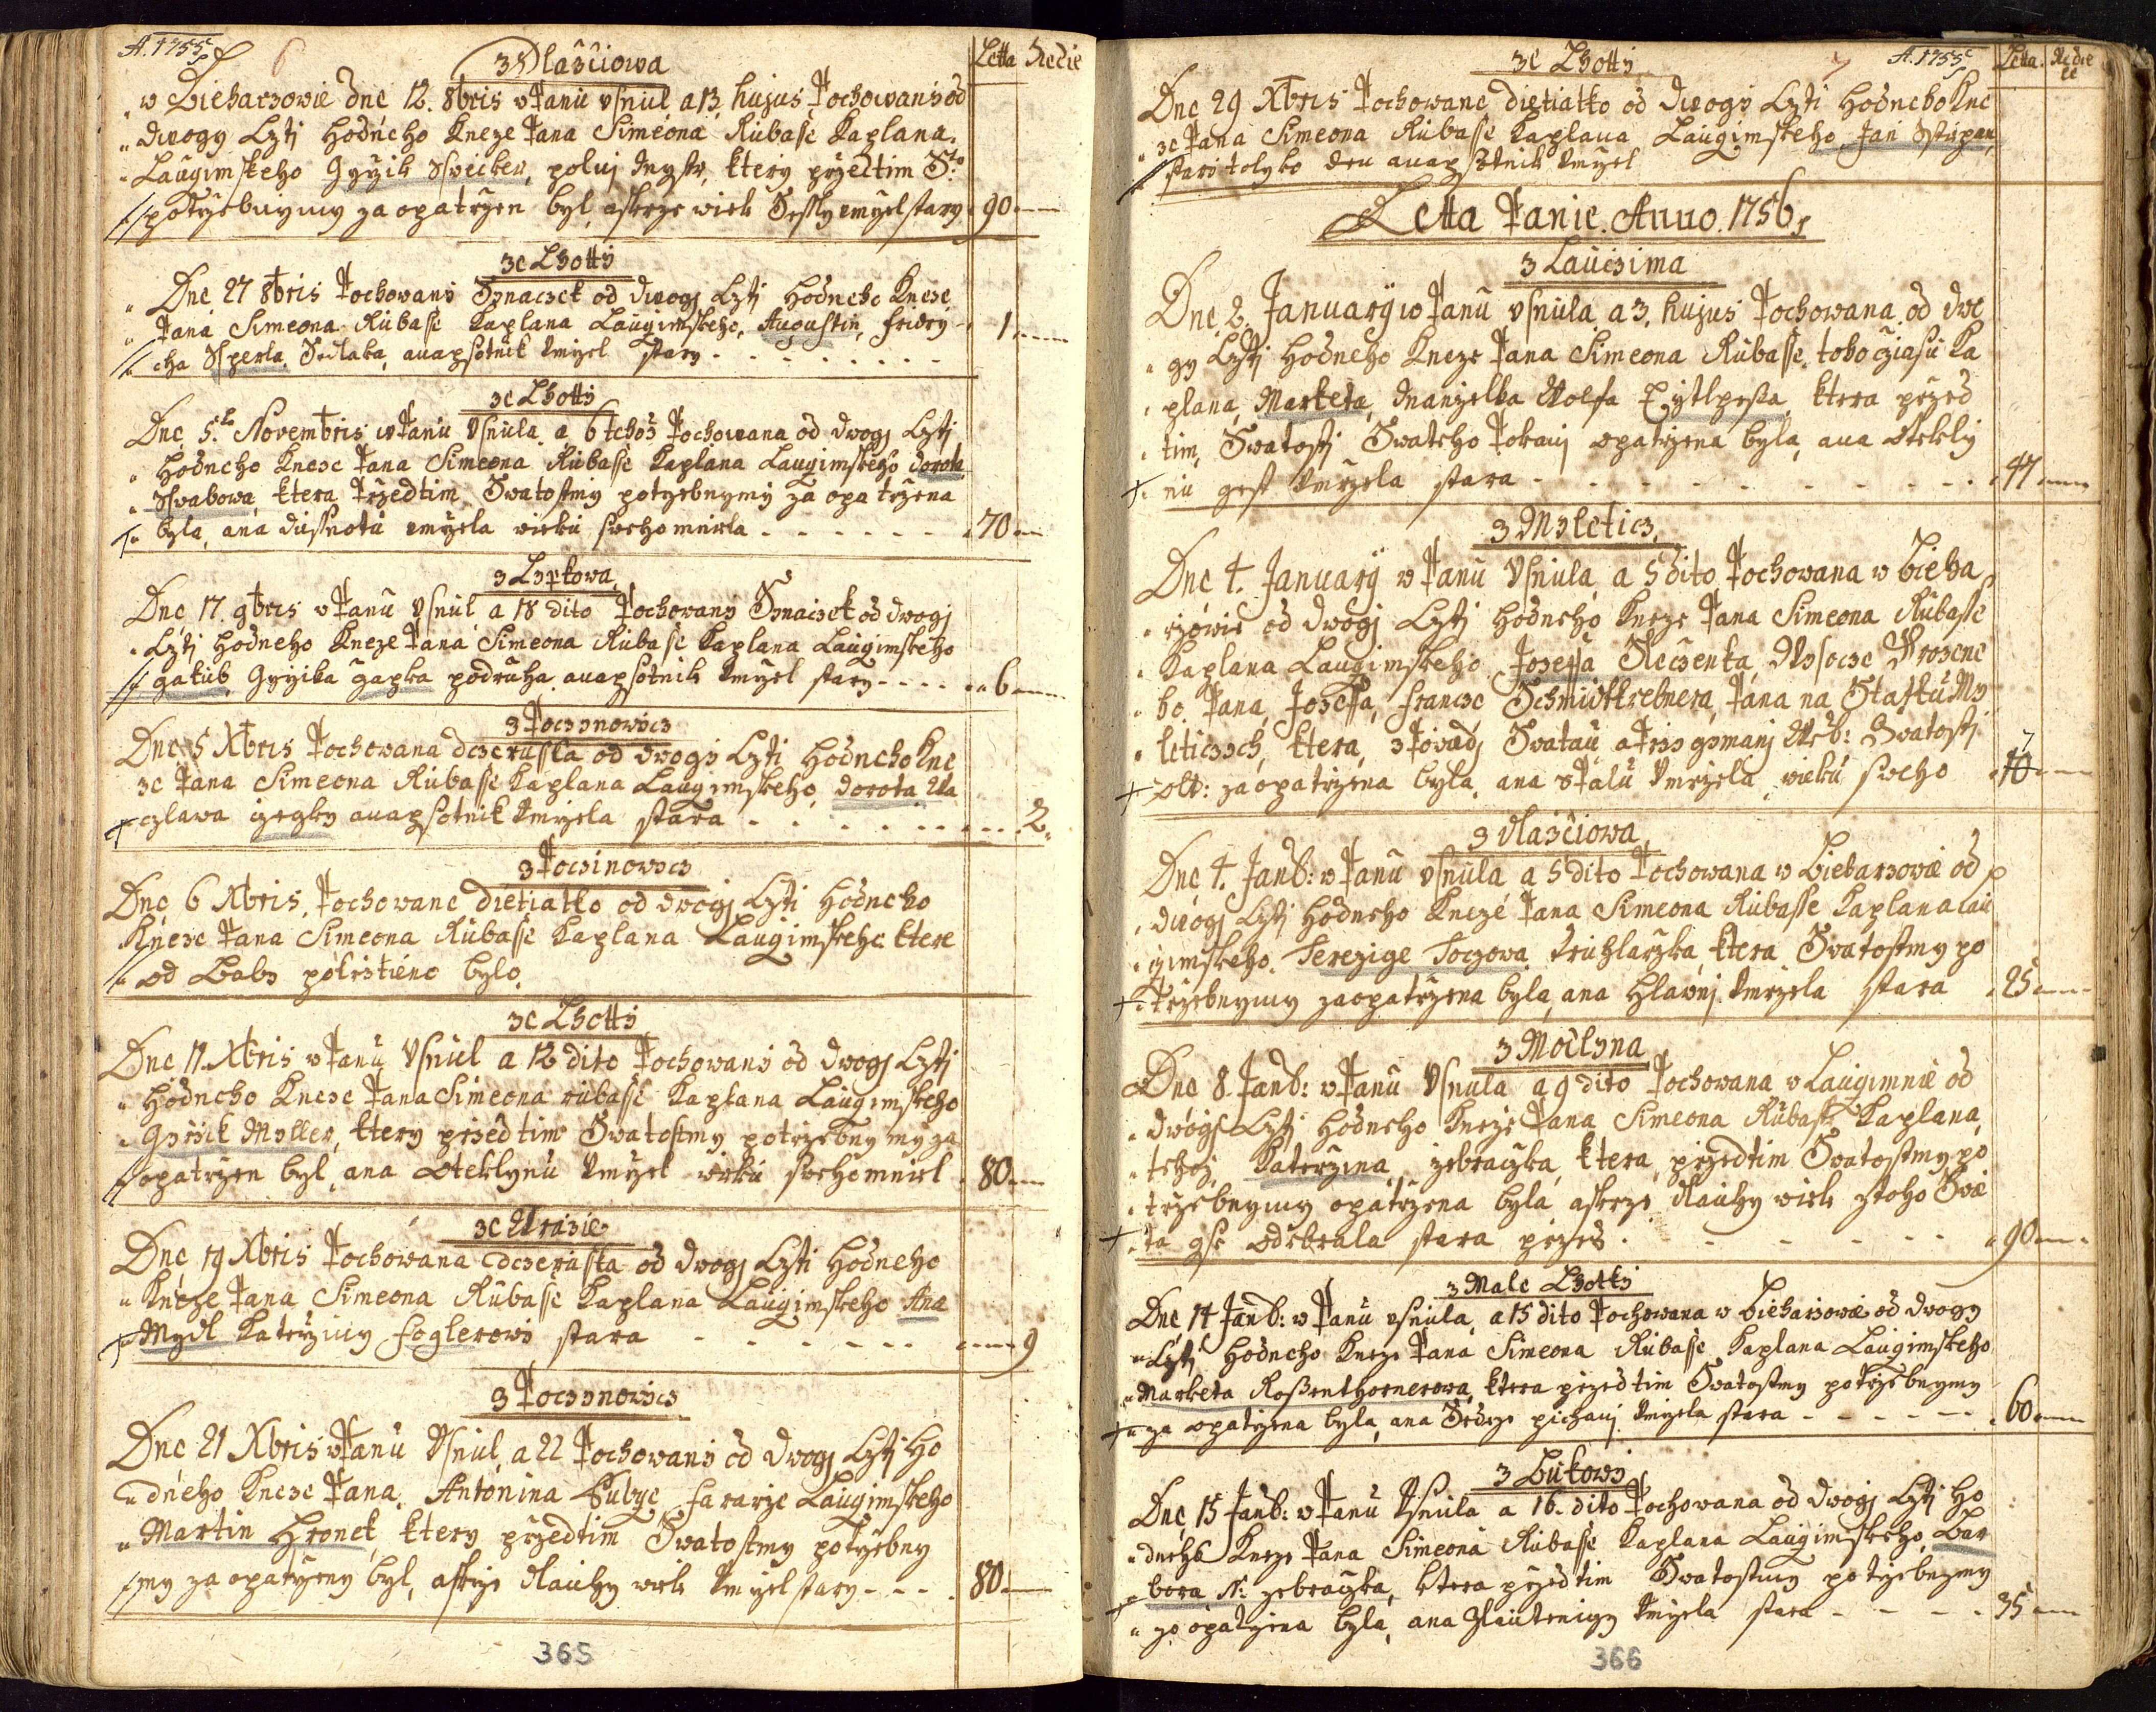 A. 1755
6
Letta Nedie
z Wlascziowa
w Biehařowie dne 12. 8bris w Panu usnul a 13 hujus Pochowany od
dwogy Czti hodneho Kneze Pana Simeona Rubasse Kaplana
Laugimskeho Gyřik Swecker, ktery přzedtim S:to
potrzebnymy za opatrzen byl, a skrze wiek Sessly umrzel stary 90
ze Lhotty
Dne 27 8bris Pochowany Synaczek od dwogj Czti hodneho Kneze
Pana Simeona Rubasse Kaplana Laugimskeho, Augustin, Fridry-
cha Sperla Sedlaka, a na psotnik Umrzel stary - - - 1
ze Lhotty
Dne 5. Novembris w Panu Usnula a 6 tehoz Pochowana od dwogj Czti
hodneho Kneze Pana Simeona Rubasse Kaplana Laugimskeho Dorota
Swabowa, ktera Przedtim Swatostmy potrzebnymy za opatrzena
byla, a na dussnotu umrzela wieku sweho miela - - - 70
z Lypkowa
Dne 17. 9bris w Panu Usnul a 18 dito Pochowany Synaczek od dwogj
Czti hodneho Kneze Pana Simeona Rubasse Kaplana Laugimskeho
Gakub, Gyrzika Gapka podruha a na psotnik Umrzel stary - - - 6
z Poczynowicz
Dne 5 Xbris Pochowana dczeruska od dwogy Czti hodneho Kne
ze Pana Simeona Rubasse Kaplana Laugimskeho, Dorota Wa
czlawa a na psotnik Umrzela stara - - - 2
z Poczinowicz
Dne 6 Xbris, Pochowane dietiatko od dwogj Czti hodneho
Kneze Pana Simeona Rubasse Kaplana Laugimskeho ktere
od Baby pokrztiéno bylo
ze Lhotty
Dne 11. Xbris w Panu Usnul a 12 dito Pochowany od dwogj Czti
hodneho Kneze Pana Simeona Rubasse Kaplana Laugimskeho
Gyrzik Myller, ktery przedtim Swatostmy potrzebnymy za
opatrzen byl, a na oteklynu Umrzel wieku sweho miel 80
ze Wrazie
Dne 19 Xbris Pochowana dczeruska od dwogj Czti hodneho
Kneze Pana Simeona Rubasse Kaplana Laugimskeho Ana
Mydl Katrziny Foglerowi stara - - - 9
z Poczynowicz
Dne 21 Xbris w Panu Usnul a 22 Pochowany od dwogj Czti ho
dneho Kneze Pana Antonina Kubze Fararze Laugimskeho
Martin Hronek, ktery przedtim Swatostmy potrzebny
my za opatrzeny byl, a skrze dlauhy wiek Umrzel stary - - - 80
365
7
A. 1755
Letta Nedie
le
ze Lhotty
Dne 29 Xbris Pochowane dietiatko od dwogy Czti hodneho Kne
ze Pana Simeona Rubasse Kaplana Laugimskeho, Jan Sstiepan,
stary tolyko den a na psotnik Umrzel
Letta Panie Anno 1756
z Lauczima
Dne 2. January w Panu Usnula a 3. hujus Pochowana od dwo
gy Czti hodneho Kneze Pana Simeona Rubasse toho cziasu Ka
plana, Marketa, Manzelka Wolfa, ktera przed
tim, Swatosti Swateho Pokani opatrzena byla, a na otekly
nu gest Umrzela stara - - - 47
z Myleticz
Dne 4. January w Panu Usnula a 5 dito Pochowana w Bieha
rzowie od dwogj Czti hodneho Kneze Pana Simeona Rubasse
Kaplana Laugimskeho, Josefa Sleczenka, Wysocze Urozene
ho Pana Josefa Francze Schmidtkrebnera, Pana na Statku My
leticzych, ktera, zpowedj Swatau a Przygymanj Weleb: Swatosti
olt: zaopatrzena byla, a na Umrzela, wieku sweho 7
z Wlascziowa
Dne 4. Janu: w Panu Usnula a 5 dito Pochowana w Biehařowie od
dwogj Czti hodneho Kneze Pana Simeona Rubasse Kaplana Lau
gimskeho. Terezige Toczowa Truhlarzka, ktera Swatostmy po
trzebnymy zaopatrzena byla, a na hlawnj Umrzela stara 25
z Modlyna
Dne 8. Janu: w Panu Usnula a 9 dito Pochowana w Laugimnie od
dwogj Czti hodneho Kneze Pana Simeona Rubasse Kaplana,
tehoz Katerzina, zebraczka, ktera, przedtim Swatostmy po
trzebnymy opatrzena byla, a skrze dlauhy wiek ztoho Swie
ta gse odebrala stara przes - - - 90
z Male Lhotty
Dne 14 Janu: w Panu usnula, a 15 dito Pochowana w Biehařowie od dwogy
Czti hodneho Kneze Pana Simeona Rubasse Kaplana Laugimskeho
Marketa Rosenthornerowa, ktera przedtim Swatostmy potrzebnymy
za opatrzena byla, a na Srdcze pichanj Umrzela stara - - - 60
z Bukowy
Dne 15 Janu: w Panu Usnula a 16. dito Pochowana od dwogj Czti ho
dneho Kneze Pana Simeona Rubasse Kaplana Laugimskeho, Bar
bora, N: zebraczka, ktera przedtim Swatostmy potrzebnymy
zo opatrzena byla, a na Umrzela stara - - - 35
366